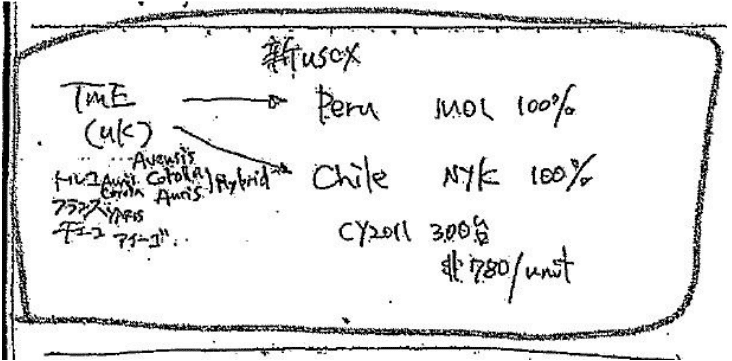 新usox
TME → Peru MOL 100%
(UK) → Chile NYK 100%
Avensis
トルコ Auris Corolla Hybrid
Auris
フランス YARIS
チェコ アイゴ
CY2011 300台
780/unit